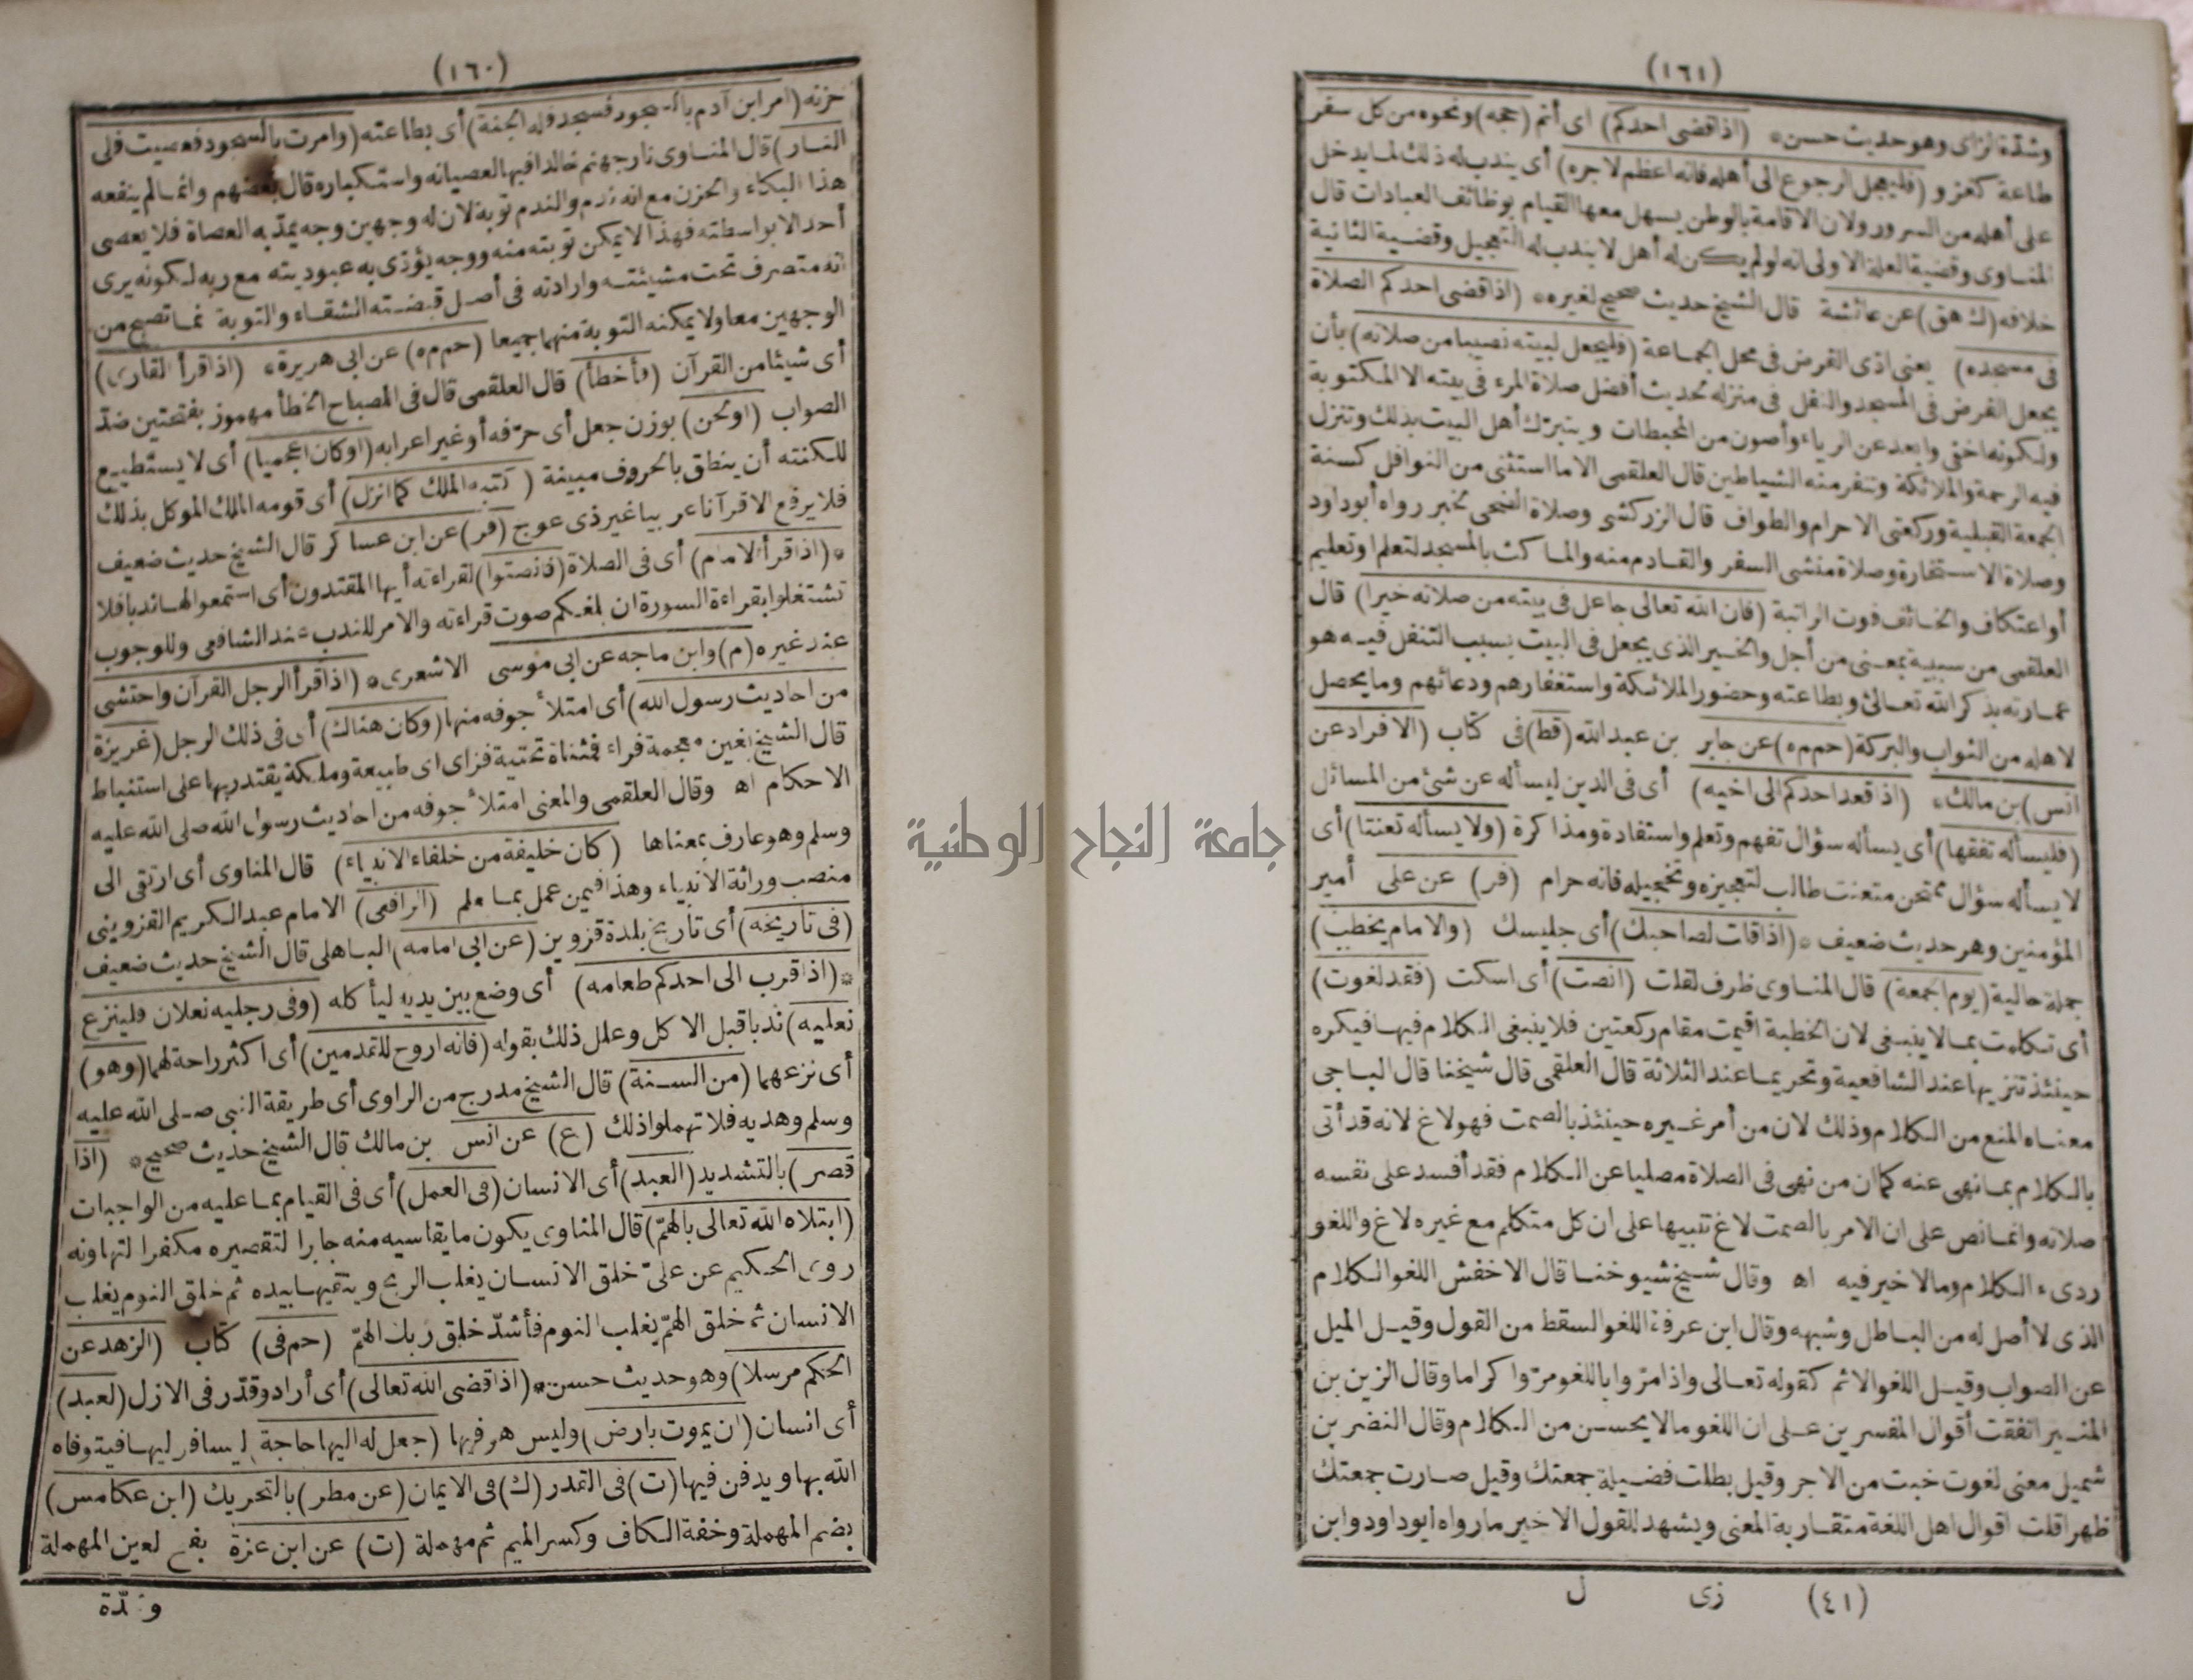 (١٦٠)
حزنه (امر ابن آدم بالسجود فسجد فله الجنة) أى بطاعته (وامرت بالسجود فعصيت فلى
النار) قال المناوى نار جهنم خالدا فيها لعصيانه واستكباره قال بعضهم وانما لم ينفعه
هذا البكاء والحزن مع انه ندم والندم توبة لان له وجهين وجه يمدّ به العصاة فلا يعصى
أحد الا بواسطته فهذا لا يمكن توبته منه ووجه يؤدّى به عبوديته مع ربه لكونه يرى
انه متصرف تحت مشيئته وارادته فى أصل قبضته الشقاء والتوبة نما تصح من
الوجهين معا ولا يمكنه التوبة منهما جميعا (حم م ه) عن ابى هريرة* (اذا قرأ القارى)
أى شيئا من القرآن (فأخطأ) قال العلقمى قال فى المصباح الخطأ مهموز بفتحتين ضدّ
الصواب (او لحن) بوزن جعل أى حرّفه أو غير اعرابه (او كان اعجميا) أى لا يستطيع
للكنته أن ينطق بالحروف مبينة (كتبه الملك كما انزل) أى قومه الملك الموكل بذلك
فلا يرفع الا قرآنا عربيا غير ذى عوج (فر) عن ابن عساكر قال الشيخ حديث ضعيف
* (اذا قرأ الامام) أى فى الصلاة (فانصتوا) لقراءته أيها المقتدون أى استمعوا لها ندبا فلا
تشتغلوا بقراءة السورة ان بلغكم صوت قراءته والامر للندب عند الشافعى وللوجوب
عند غيره (م) وابن ماجه عن ابى موسى الاشعرى* (اذا قرأ الرجل القرآن واحتشى
من احاديث رسول الله) أى امتلأ جوفه منها (وكان هناك) أى فى ذلك الرجل (غريزة
قال الشيخ بغين معجمة فراء فمثناة تحتية فزاى اى طبيعة وملكة يقتدر بها على استنباط
الاحكام اه وقال العلقمى والمعنى امتلأ جوفه من احاديث رسول الله صلى الله عليه
وسلم وهو عارف بمعناها (كان خليفة من خلفاء الانبياء) قال المناوى أى ارتقى الى
منصب وراثة الانبياء وهذا فيمن عمل بما علم (الرافعى) الامام عبد الكريم القزوينى
(فى تاريخه) أى تاريخ بلدة قزوين (عن ابى امامه) الباهلى قال الشيخ حديث ضعيف
*(اذا قرب الى احدكم طعامه) أى وضع بين يديه ليأكله (وفى رجليه نعلان فلينزع
نعليه) ندبا قبل الاكل وعلل ذلك بقوله (فانه اروح للقدمين) أى اكثر راحة لهما (وهو)
أى نزعهما (من السنة) قال الشيخ مدرج من الراوى أى طريقة النبى صلى الله عليه
وسلم وهديه فلا تهملوا ذلك (ع) عن انس بن مالك قال الشيخ حديث صحيح* (اذا
قصر) بالتشديد (العبد) أى الانسان (فى العمل) أى فى القيام بما عليه من الواجبات
(ابتلاه الله تعالى بالهمّ) قال المناوى يكون ما يقاسيه منه جابرا لتقصيره مكفرا لتهاونه
روى الحكيم عن علىّ خلق الانسان يغلب الريح ويتقيها بيده ثم خلق النوم يغلب
الانسان ثم خلق الهمّ يغلب النوم فأشدّ خلق ربك الهمّ (حم فى) كتاب (الزهد عن
الحكم مرسلا) وهو حديث حسن* (اذا قضى الله تعالى) أى أراد وقدّر فى الازل (لعبد)
أى انسان (ان يموت بارض) وليس هو فيها (جعل له اليها حاجة) ليسافر ليها فيتوفاه
الله بها ويدفن فيها (ت) فى القدر (ك) فى الايمان (عن مطر) بالتحريك (ابن عكامس)
بضم المهملة وخفة الكاف وكسر الميم ثم مهملة (ت) عن ابن عزة بفتح لعين المهملة
وشدّة
(١٦١)
وشدّة لزاى وهو حديث حسن* (اذا قضى احدكم) اى أتم (حجه) ونحوه من كل سفر
طاعة كغزو (فليعجل الرجوع الى أهله فانه اعظم لاجره) أى يندب له ذلك لما يدخل
على أهله من السرور ولان الاقامة بالوطن يسهل معها القيام بوظائف العبادات قال
المناوى وقضية العلة الاولى انه لو لم يكن له أهل لا يندب له التعجيل وقضية الثانية
خلافه (ك هق) عن عائشة قال الشيخ حديث صحيح لغيره* (اذا قضى احدكم الصلاة
فى مسجده) يعنى ادّى الفرض فى محل الجماعة (فليجعل لبيته نصيبا من صلاته) بأن
يجعل الفرض فى المسجد والنفل فى منزله لحديث أفضل صلاة المرء فى بيته الا المكتوبة
ولكونه اخفى وابعد عن الرياء وأصون من المحبطات ويتبرّك أهل البيت بذلك وتنزل
فيه الرحمة والملائكة وتنفر منه الشياطين قال العلقمى الا ما استثنى من النوافل كسنة
الجمعة القبلية وركعتى الاحرام والطواف قال الزركشى وصلاة الضحى لخبر رواه أبو داود
وصلاة الاستخارة وصلاة منشى السفر والقادم منه والماكث بالمسجد لتعلم او تعليم
أو اعتكاف والخائف فوت الراتبة (فان الله تعالى جاعل فى بيته من صلاته خيرا) قال
العلقمى من سببية بمعنى من أجل والخير الذى يجعل فى البيت بسبب التنفل فيه هو
عمارته بذكر الله تعالى وبطاعته وحضور الملائكة واستغفارهم ودعائهم وما يحصل
لاهله من الثواب والبركة (حم م ه) عن جابر بن عبد الله (قط) فى كتاب (الافراد عن
انس) بن مالك* (اذ قعد احدكم الى اخيه) أى فى الدين ليسأله عن شئ من المسائل
(فليسأله تفقها) أى يسأله سؤال تفهم وتعلم واستفادة ومذاكرة (ولا يسأله تعنتا) أى
لا يسأله سؤال ممتحن متعنت طالب لتعجيزه وتخجيله فانه حرام (فر) عن على أمير
المؤمنين وهو حديث ضعيف *(اذا قلت لصاحبك) أى جليسك (والامام يخطب)
جملة حالية (يوم الجمعة) قال المناوى ظرف لقلت (انصت) أى اسكت (فقد لغوت)
أى تكلمت بما لا ينبغى لان الخطبة اقيمت مقام ركعتين فلا ينبغى الكلام فيها فيكره
حينئذ تنزيها عند الشافعية وتحريما عند الثلاثة قال العلقمى قال شيخنا قال الباجى
معناه المنع من الكلام وذلك لان من أمر غيره حينئذ بالصمت فهو لاغ لانه قد أتى
بالكلام بما نهى عنه كما ان من نهى فى الصلاة مصليا عن الكلام فقد أفسد على نفسه
صلاته وانما نص على ان الامر بالصمت لاغ تنبيها على ان كل متكلم مع غيره لاغ واللغو
ردىء الكلام وما لا خير فيه اه وقال شيخ شيوخنا قال الاخفش اللغو الكلام
الذى لا أصل له من الباطل وشبهه وقال ابن عرفة اللغو السقط من القول وقيل الميل
عن الصواب وقيل اللغو الاثم كقوله تعالى واذا مرّوا باللغو مرّوا كراما وقال الزين بن
المنير اتفقت أقوال المفسرين على ان اللغو ما لا يحسن من الكلام وقال النضر بن
شميل معنى لغوت خبت من الاجر وقيل بطلت فضيلة جمعتك وقيل صارت جمعتك
ظهرا قلت اقوال اهل اللغة متقاربة المعنى ويشهد للقول الاخير ما رواه ابو داود وابن
(٤١) زى ل
جامعة النجاح الوطنية